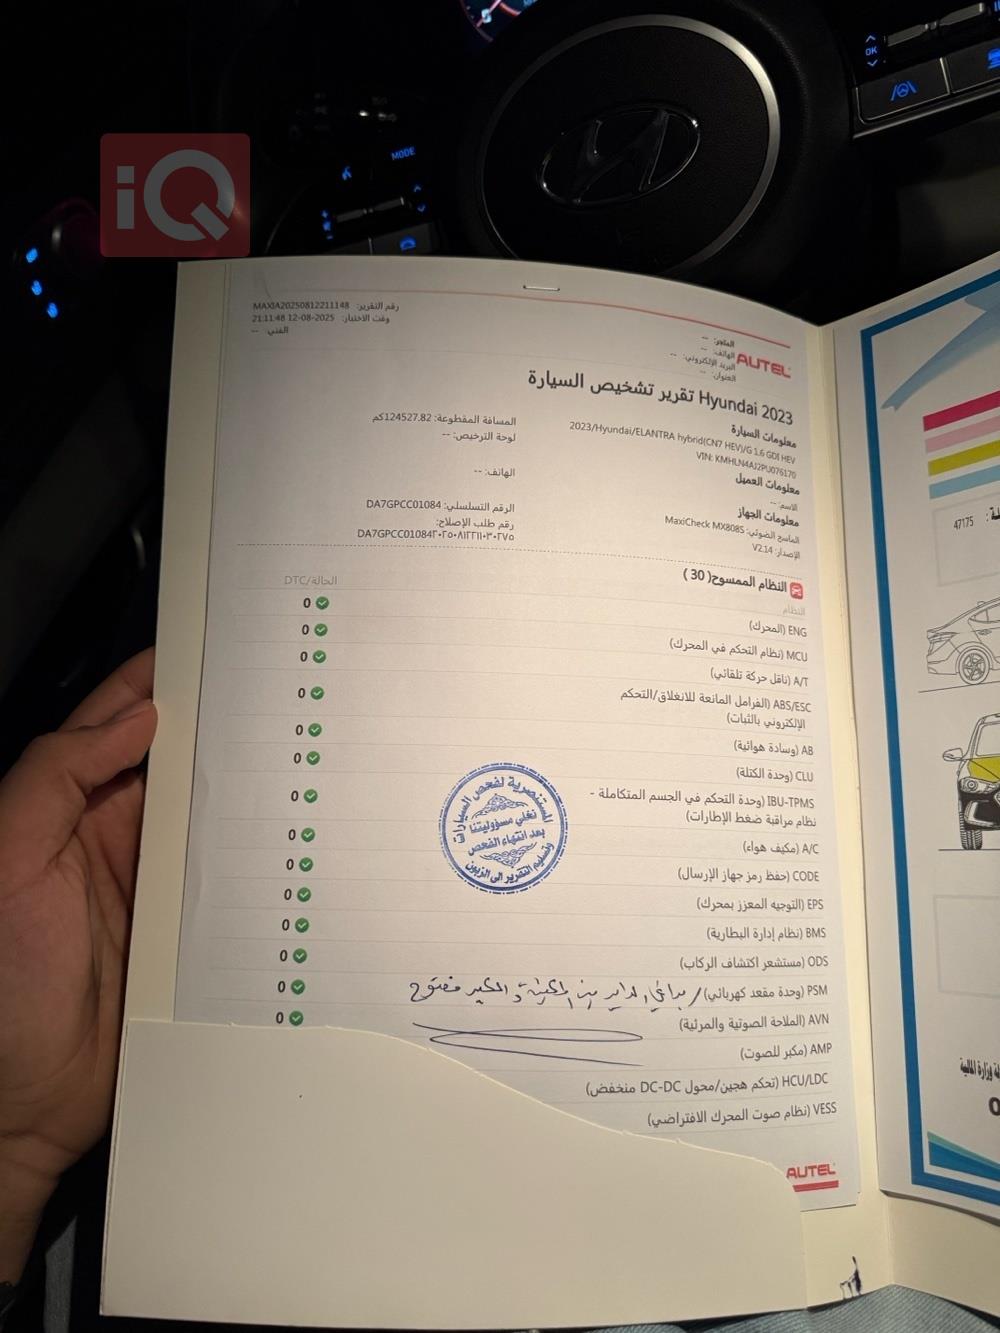 iQ
MODE
OK
رقم التقرير: MAXIA20250812211148
وقت الاختبار: 2025-08-12 21:11:48
الفني: --
AUTEL
المتجر: --
الهاتف: --
البريد الإلكتروني: --
العنوان: --
Hyundai 2023 تقرير تشخيص السيارة
معلومات السيارة
2023/Hyundai/ELANTRA hybrid(CN7 HEV)/G 1.6 GDI HEV
VIN: KMHLN4AJ2PU076170
المسافة المقطوعة: 124527.82كم
لوحة الترخيص: --
معلومات العميل
الاسم: --
الهاتف: --
معلومات الجهاز
الماسح الضوئي: MaxiCheck MX808S
الإصدار: V2.14
الرقم التسلسلي: DA7GPCC01084
رقم طلب الإصلاح:
DA7GPCC01084٢٠٢٥٠٨١٢٢١١٠٣٠٢٧٥
النظام الممسوح( 30 )
النظام
الحالة/DTC
ENG (المحرك) 0
MCU (نظام التحكم في المحرك) 0
A/T (ناقل حركة تلقائي) 0
ABS/ESC (الفرامل المانعة للانغلاق/التحكم 0
الإلكتروني بالثبات)
AB (وسادة هوائية) 0
CLU (وحدة الكتلة) 0
IBU-TPMS (وحدة التحكم في الجسم المتكاملة - 0
نظام مراقبة ضغط الإطارات)
A/C (مكيف هواء) 0
CODE (حفظ رمز جهاز الإرسال) 0
EPS (التوجيه المعزز بمحرك) 0
BMS (نظام إدارة البطارية) 0
ODS (مستشعر اكتشاف الركاب) 0
PSM (وحدة مقعد كهربائي) 0
AVN (الملاحة الصوتية والمرئية) 0
AMP (مكبر للصوت)
HCU/LDC (تحكم هجين/محول DC-DC منخفض)
VESS (نظام صوت المحرك الافتراضي)
المستنصرية لفحص السيارات
نخلي مسؤوليتنا
بعد انتهاء الفحص
وتسليم التقرير الى الزبون
AUTEL
47175
وزارة المالية